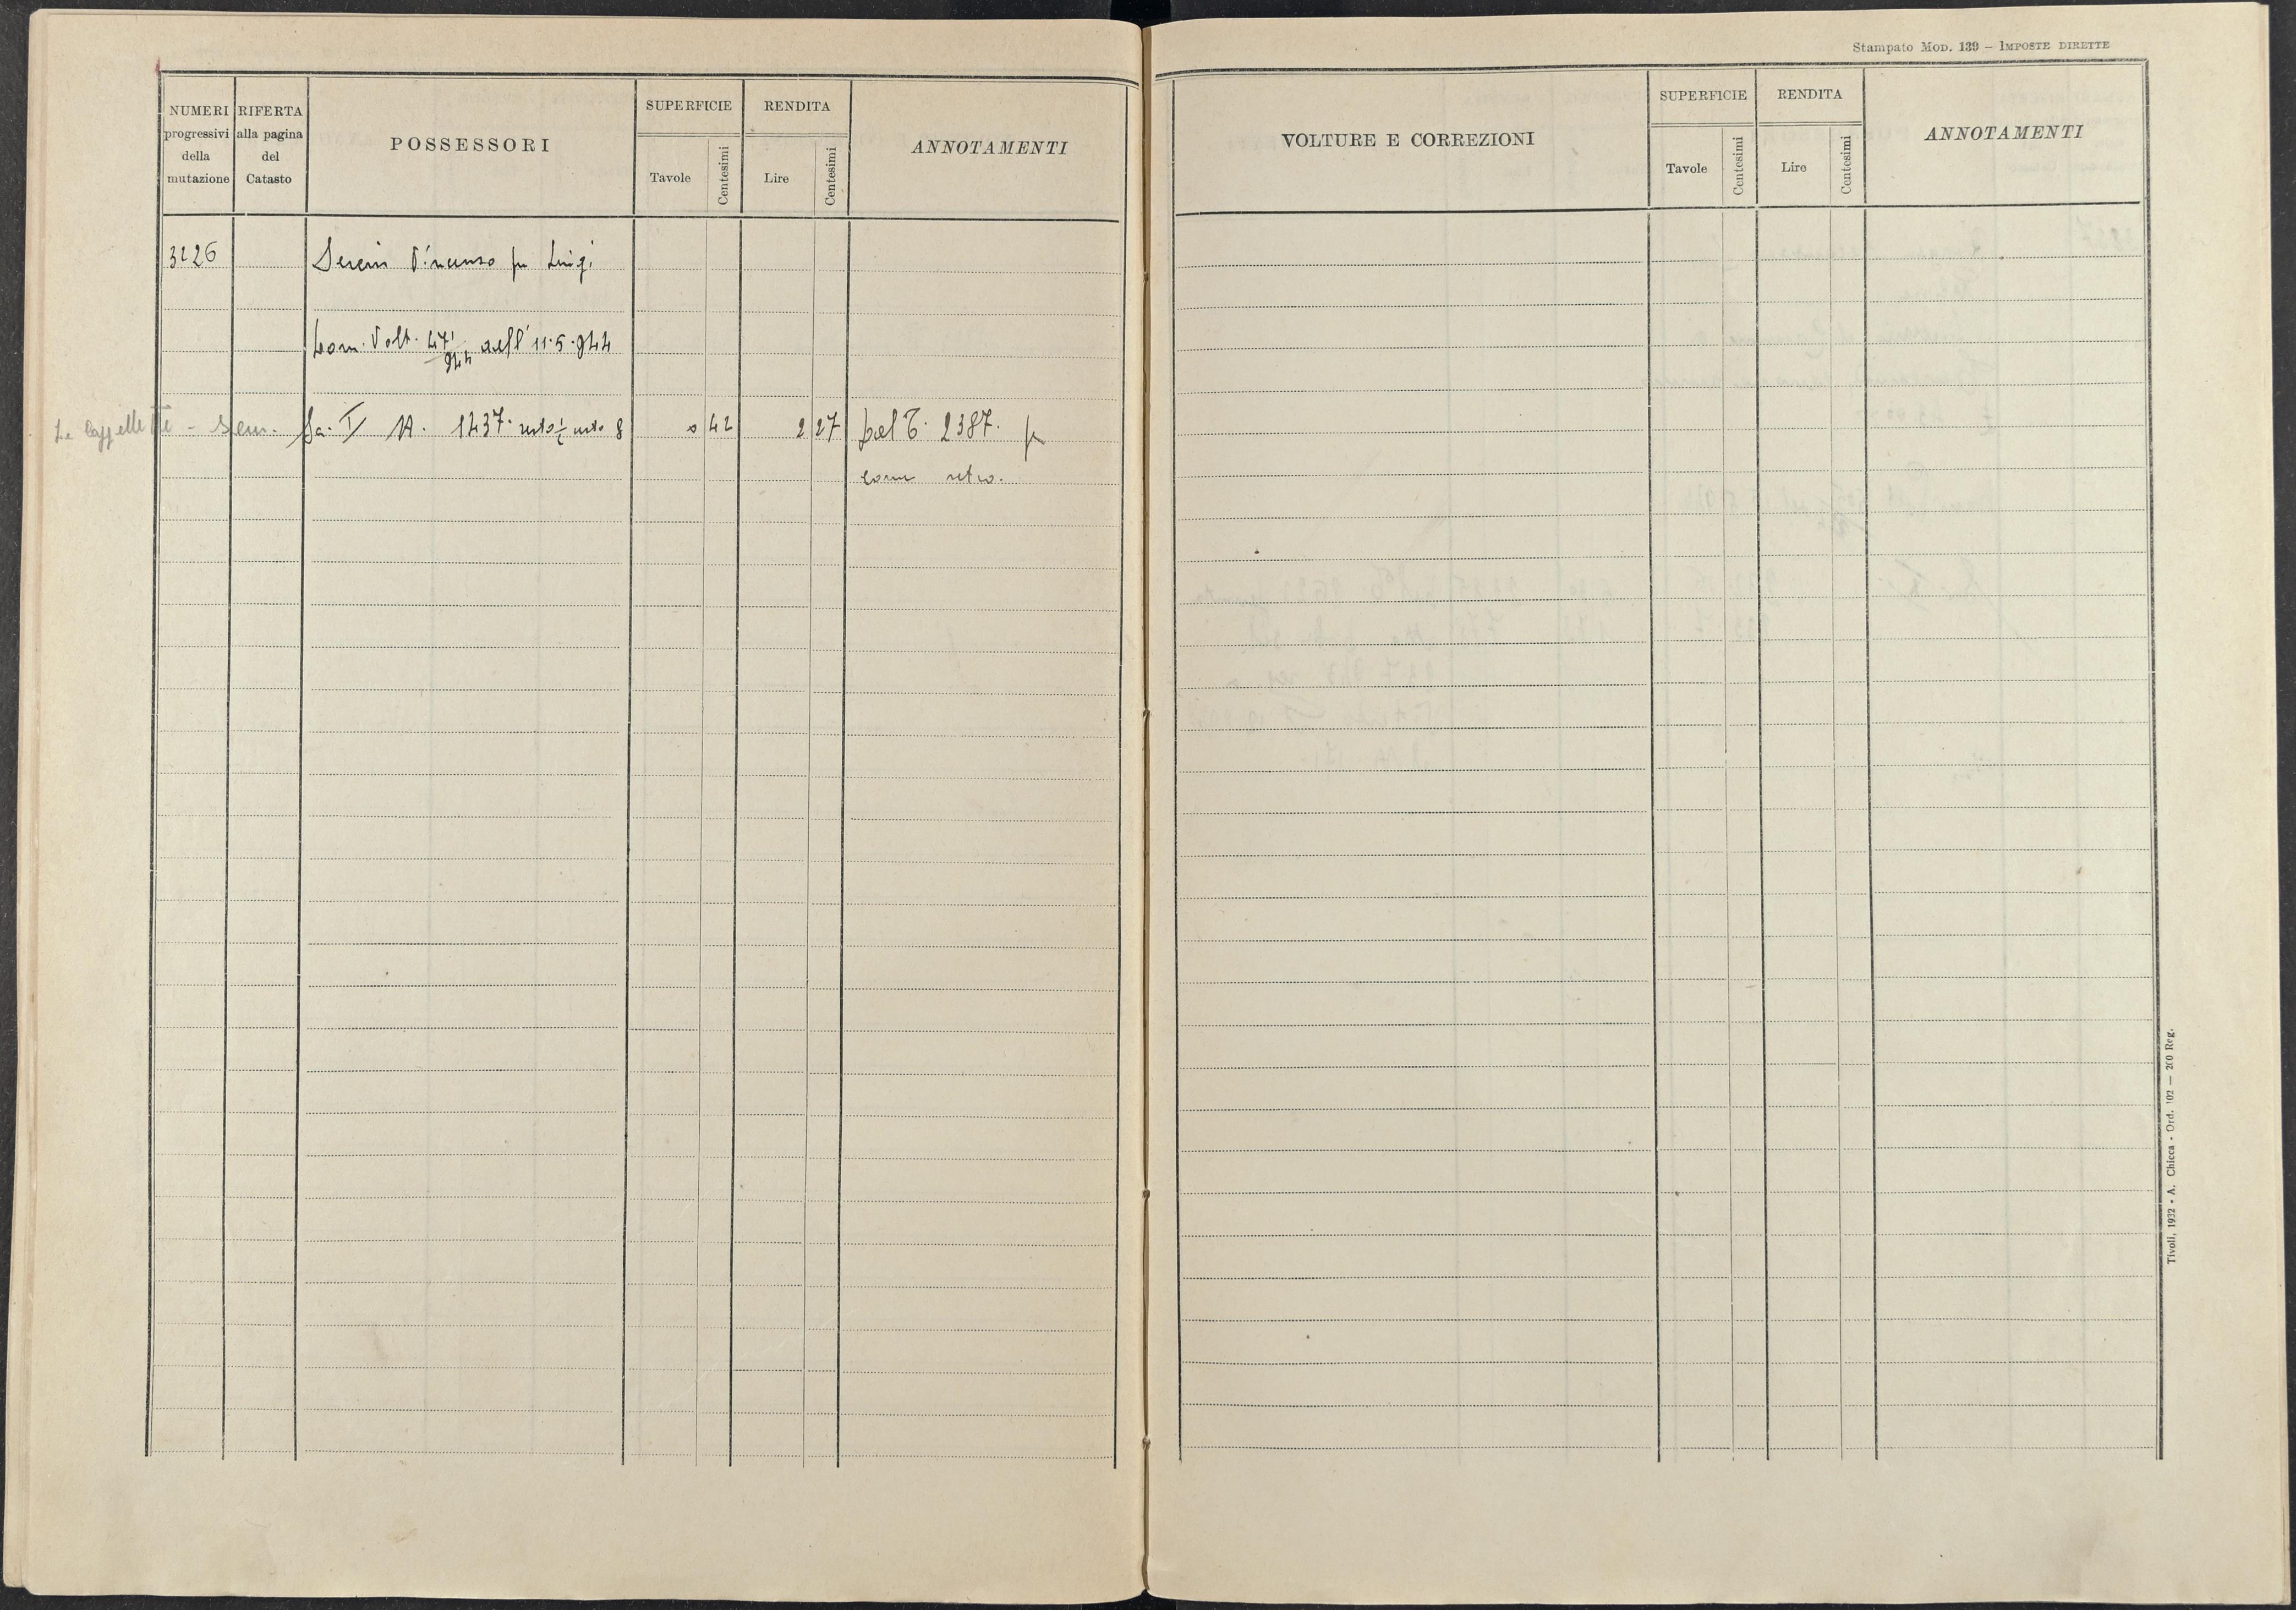 Stampato Mod. 139 – Imposte dirette
NUMERI progressivi della mutazione
RIFERTA alla pagina del Catasto
POSSESSORI
SUPERFICIE
Tavole
Centesimi
RENDITA
Lire
Centesimi
ANNOTAMENTI
3226
Sereni Vincenzo fu Luigi
Volt. 471/944 dell' 11.5.944
Le Cappellette - Sem.
Se. I
1237
0 42
2 27
Dal 2387
come retro.
VOLTURE E CORREZIONI
SUPERFICIE
Tavole
Centesimi
RENDITA
Lire
Centesimi
ANNOTAMENTI
Tivoli, 1932 - A. Chicca - Ord. 102 — 200 Reg.